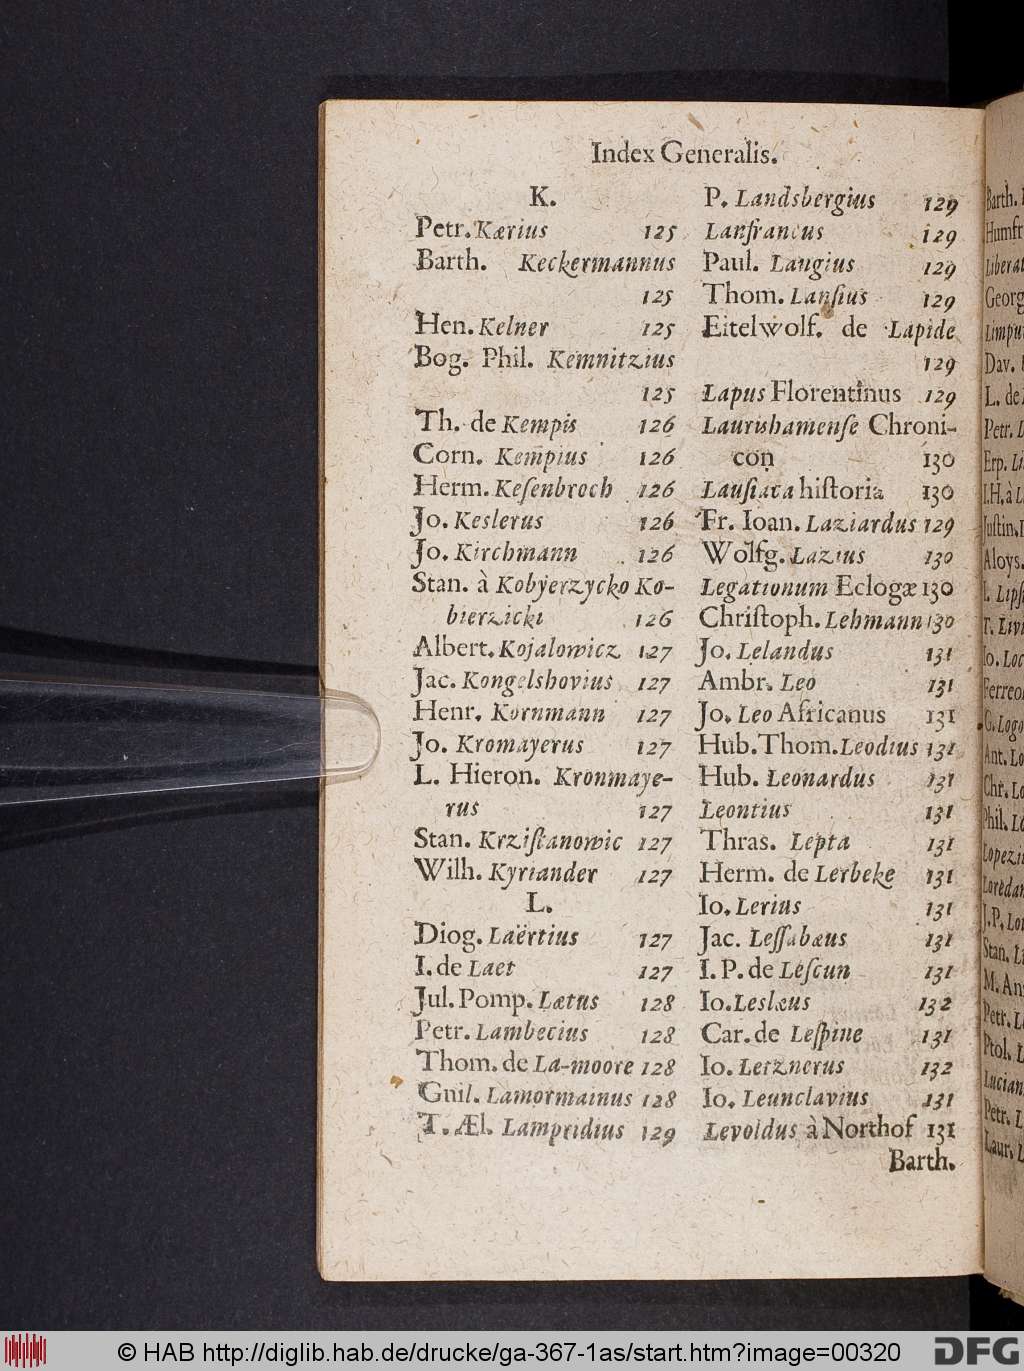 Index Generalis.
K.
Petr. Kærius 125
Barth. Keckermannus
125
Hen. Kelner 125
Bog. Phil. Kemnitzius
125
Th. de Kempis 126
Corn. Kempius 126
Herm. Keſenbroch 126
Jo. Keslerus 126
Jo. Kirchmann 126
Stan. à Kobyerzycko Ko-
bierzicki 126
Albert. Kojalowicz 127
Jac. Kongelshovius 127
Henr. Kornmann 127
Jo. Kromayerus 127
L. Hieron. Kronmaye-
rus 127
Stan. Krziſtanowic 127
Wilh. Kyriander 127
L.
Diog. Laërtius 127
I. de Laet 127
Jul. Pomp. Lætus 128
Petr. Lambecius 128
Thom. de La-moore 128
Guil. Lamormainus 128
T. Æl. Lampridius 129
P. Landsbergius 129
Lanfrancus 129
Paul. Langius 129
Thom. Lanſius 129
Eitelwolf. de Lapide
129
Lapus Florentinus 129
Laurishamenſe Chroni-
con 130
Lauſiaca hiſtoria 130
Fr. Ioan. Laziardus 129
Wolfg. Lazius 130
Legationum Eclogæ 130
Chriſtoph. Lehmann 130
Jo. Lelandus 131
Ambr. Leo 131
Jo. Leo Africanus 131
Hub. Thom. Leodius 131
Hub. Leonardus 131
Leontius 131
Thras. Lepta 131
Herm. de Lerbeke 131
Io. Lerius 131
Jac. Leſſabæus 131
I. P. de Leſcun 131
Io. Leslæus 132
Car. de Leſpine 131
Io. Letznerus 132
Io. Leunclavius 131
Levoldus à Northof 131
Barth.
Barth.
Humfr
Liberat
Georg
Dav.
L. de
Petr.
Erp.
I. H. à
Juſtin.
Aloys.
I. Lipſ
T. Livi
Io. Loc
Ferreo
G. Logo
Ant. Lo
Chr. Lo
Phil. Lo
J. P. Lo
Stan.
M. An
Petr.
Ptol.
Lucian
Petr.
Laur.
© HAB http://diglib.hab.de/drucke/ga-367-1as/start.htm?image=00320
DFG